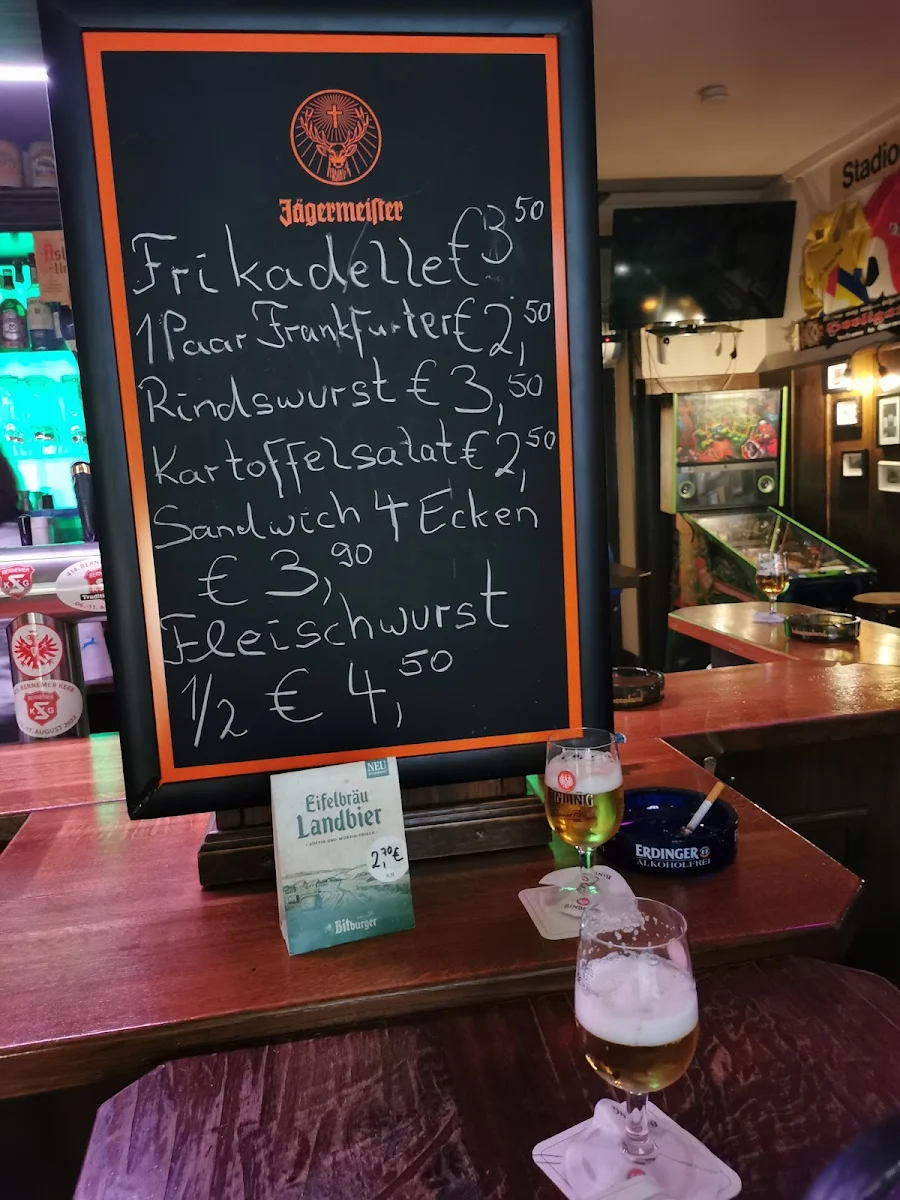 Jägermeister
Frikadelle € 3 50
1 Paar Frankfurter € 2,50
Rindswurst € 3,50
Kartoffelsalat € 2,50
Sandwich 4 Ecken
€ 3,90
Fleischwurst
1/2 € 4,50
NEU
Eifelbräu
Landbier
2,70€
Bitburger
ERDINGER
ALKOHOLFREI
DING
Stadio
BERNEMER
K S G
BERNEMER KERB
K S G
AUGUST